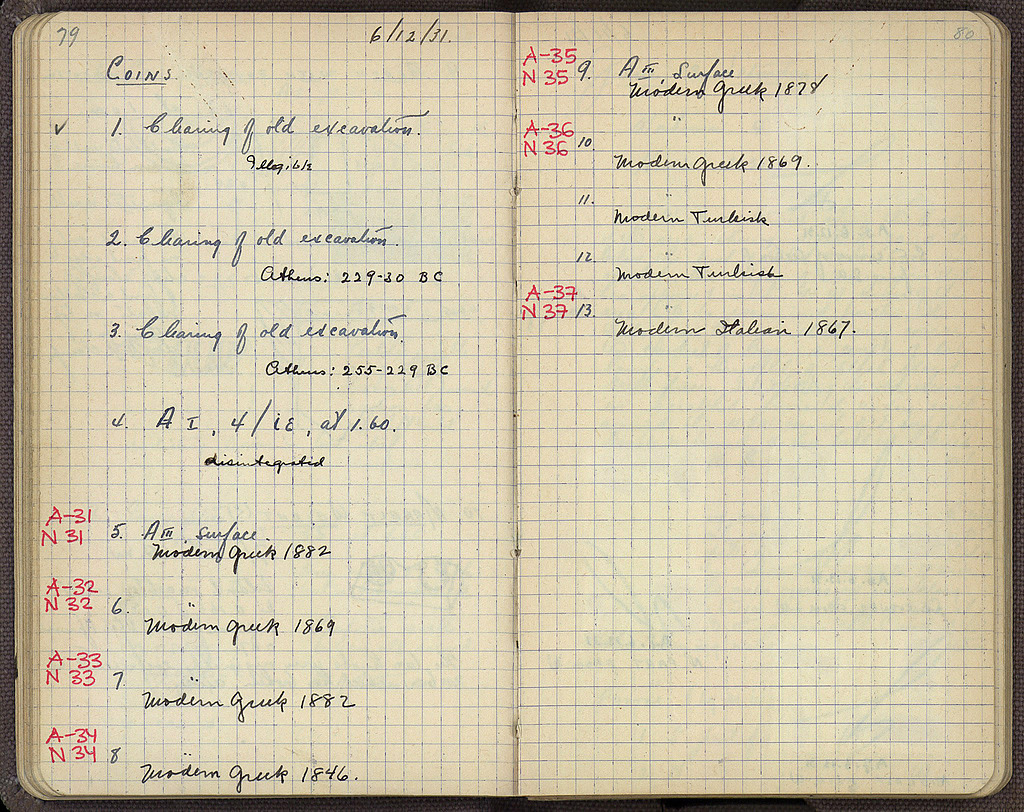 79
6/12/31.
COINS.
✓ 1. Clearing of old excavation.
Illegible
2. Clearing of old excavation.
Athens: 229-30 BC
3. Clearing of old excavation.
Athens: 255-229 BC
4. A I, 4/ΙΕ, at 1.60.
disintegrated
A-31
N 31 5. A III, Surface.
Modern Greek 1882
A-32
N 32 6. "
Modern Greek 1869
A-33
N 33 7 "
Modern Greek 1882
A-34
N 34 8 "
Modern Greek 1846.
80
A-35
N 35 9. A III, Surface
Modern Greek 1878
A-36 "
N 36 10
Modern Greek 1869.
11. "
Modern Turkish
12 "
Modern Turkish
A-37
N 37 13. "
Modern Italian 1867.